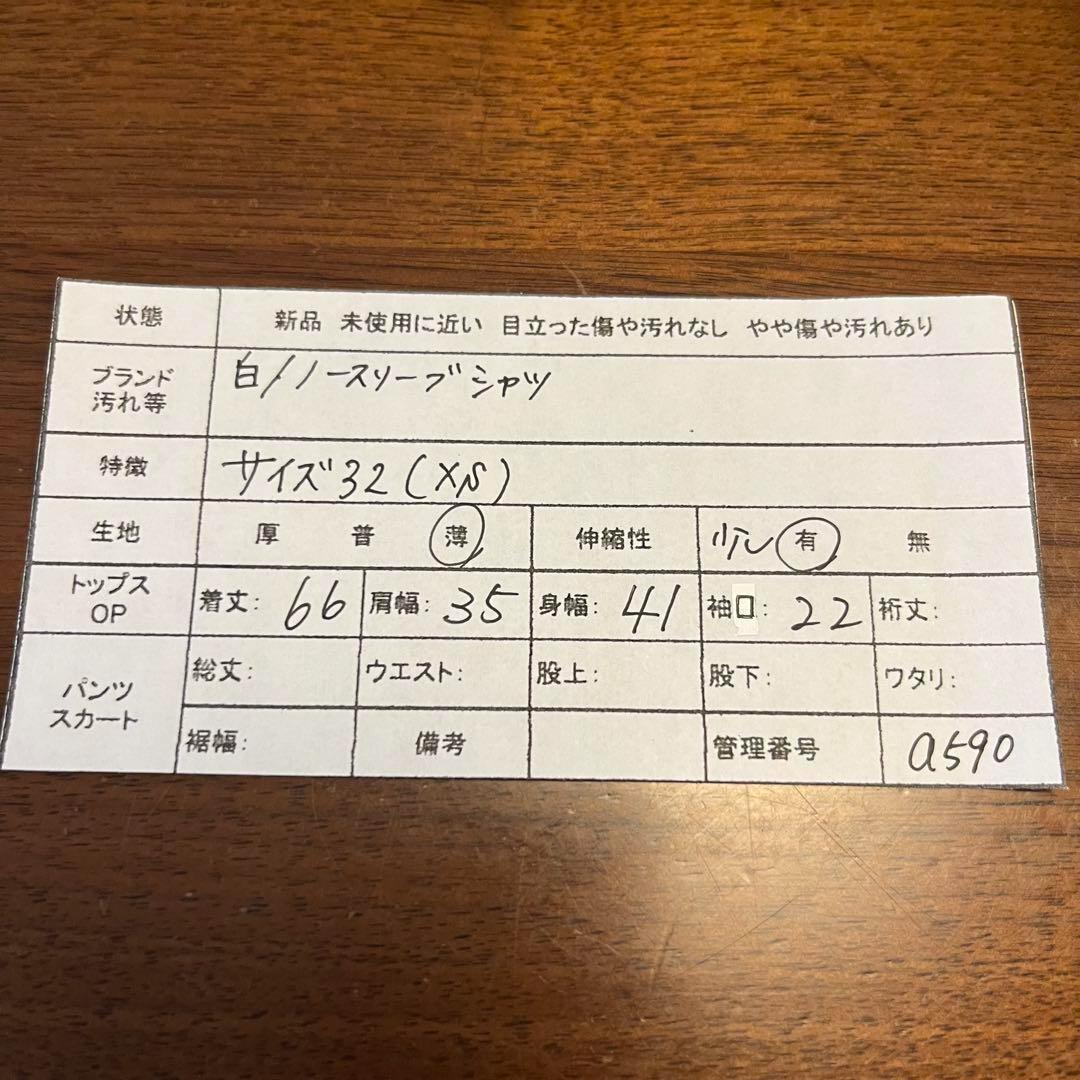 状態 新品 未使用に近い 目立った傷や汚れなし やや傷や汚れあり
ブランド 汚れ等 白/ノースリーブシャツ
特徴 サイズ32(XS)
生地 厚 普 薄 伸縮性 少し 有 無
トップス OP 着丈: 66 肩幅: 35 身幅: 41 袖口: 22 裄丈:
パンツ スカート 総丈: ウエスト: 股上: 股下: ワタリ:
裾幅: 備考 管理番号 a590